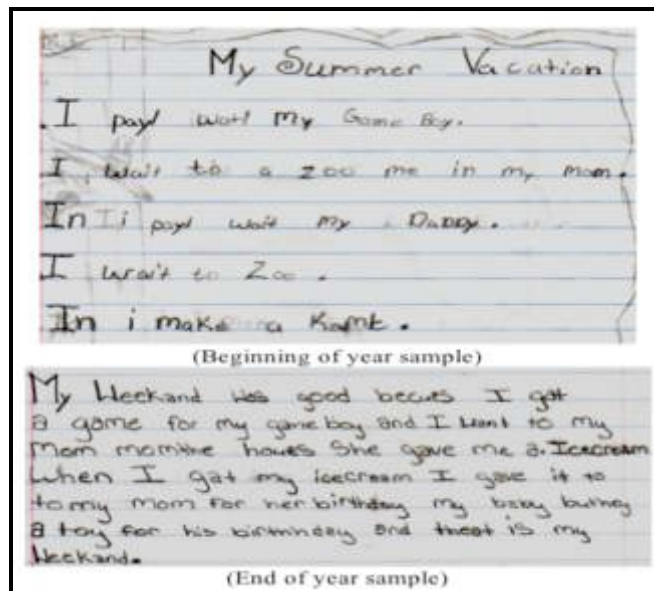 My Summer Vacation
.I payl wotl my Game Boy.
I wait to a zoo me in my mom.
In I i payl wait my Daddy.
I wrait to Zoo.
In i make a Kamt.
(Beginning of year sample)
My Weekand was good becues I gat
a game for my gameboy and I want to my
mom momthe houes She gave me a. Icecream
when I gat my icecream I gave it to
to my mom for her birthday my baby buthey
a toy for his birthnday and theat is my
Weekand.
(End of year sample)